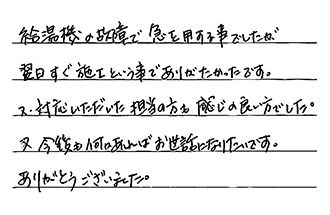 給湯機の故障で急を用する事でしたが
翌日すぐ施工という事でありがたかったです。
又、対応いただいた担当の方も感じの良い方でした。
又今後も何かあればお世話になりたいです。
ありがとうございました。